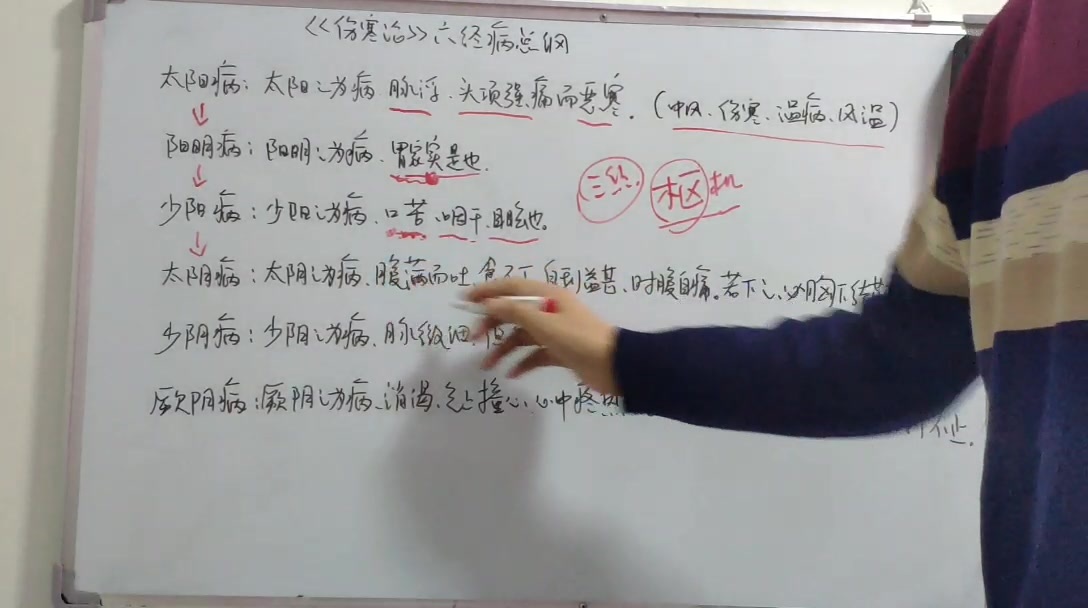 《《伤寒论》》六经病总纲
太阳病：太阳之为病 脉浮、头项强痛而恶寒。（中风、伤寒、温病、风温）
阳明病：阳明之为病、胃家实是也.
三丝 枢机
少阳病：少阳之为病、口苦、咽干、目眩也。
太阴病：太阴之为病、腹满而吐、食不下 自利益甚、时腹自痛。若下之、必胸下结
少阴病：少阴之为病、脉微细、但
厥阴病：厥阴之为病、消渴、气上撞心、心中疼热
止.